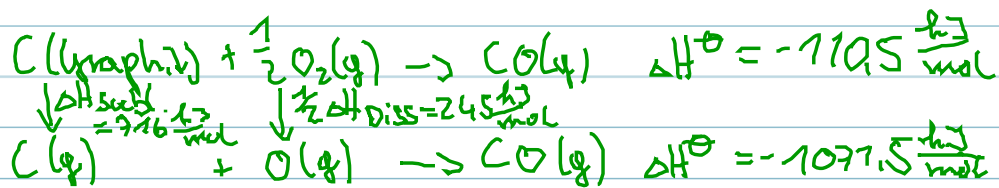 C(Graphit) + 1/2 O₂(g) → CO(g) ΔH^⊖ = -110,5 kJ/mol
↓ΔH Subl = 716 kJ/mol ↓ 1/2 ΔH Diss = 245 kJ/mol
C(g) + O(g) → CO(g) ΔH^⊖ = -1071,5 kJ/mol